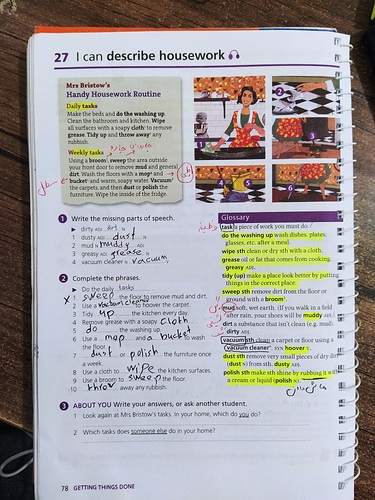 27 I can describe housework
Mrs Bristow's
Handy Housework Routine
Daily tasks
Make the beds and do the washing up.
Clean the bathroom and kitchen. Wipe
all surfaces with a soapy cloth to remove
grease. Tidy up and throw away any
rubbish.
Weekly tasks
Using a broom, sweep the area outside
your front door to remove mud and general
dirt. Wash the floors with a mop and
bucket and warm, soapy water. Vacuum
the carpets, and then dust or polish the
furniture. Wipe the inside of the fridge.
1 Write the missing parts of speech.
dirty ADJ dirt N
1 dusty ADJ dust N
2 mud N muddy ADJ
3 greasy ADJ grease N
4 vacuum cleaner N vacuum
2 Complete the phrases.
Do the daily tasks
1 sweep the floor to remove mud and dirt.
2 Use a vacuum cleaner to hoover the carpet.
3 Tidy up the kitchen every day.
4 Remove grease with a soapy cloth
5 do the washing up.
6 Use a mop and a bucket to wash
the floor.
7 dust or polish the furniture once
a week.
8 Use a cloth to wipe the kitchen surfaces.
9 Use a broom to sweep the floor.
10 throw away any rubbish.
3 ABOUT YOU Write your answers, or ask another student.
1 Look again at Mrs Bristow's tasks. In your home, which do you do?
2 Which tasks does someone else do in your home?
Glossary
task a piece of work you must do
do the washing up wash dishes, plates,
glasses, etc. after a meal.
wipe sth clean or dry sth with a cloth.
grease oil or fat that comes from cooking.
greasy ADJ.
tidy (up) make a place look better by putting
things in the correct place.
sweep sth remove dirt from the floor or
ground with a broom.
mud soft, wet earth. (If you walk in a field
after rain, your shoes will be muddy ADJ.)
dirt a substance that isn't clean (e.g. mud).
dirty ADJ.
vacuum sth clean a carpet or floor using a
vacuum cleaner. SYN hoover
dust sth remove very small pieces of dry dirt
(dust N) from sth. dusty ADJ.
polish sth make sth shine by rubbing it with
a cream or liquid (polish N).
78 GETTING THINGS DONE